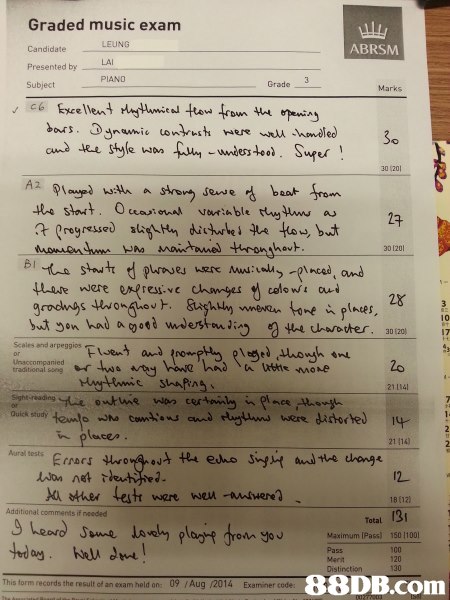 Graded music exam
ABRSM
Candidate LEUNG
Presented by LAI
Subject PIANO Grade 3
Marks
C6 Excellent rhythmical flow from the opening
bars. Dynamic contrasts were well-handled
and the style was fully-understood. Super!
30
30 (20)
A2 Played with a strong sense of beat from
the start. Occasional variable rhythms as
it progressed slightly disturbed the flow, but
momentum was maintained throughout.
27
30 (20)
B1 The starts of phrases were musically-placed, and
there were expressive changes of colours and
gradings throughout. Slightly uneven tone in places,
but you had a good understanding of the character.
28
30 (20)
Scales and arpeggios
or
Unaccompanied
traditional song
Fluent and promptly played, though one
or two may have had a little more
rhythmic shaping.
20
21 (14)
Sight-reading
or
Quick study
The outline was certainly in place, though
tempo was cautious and rhythms were distorted
in places.
14
21 (14)
Aural tests
Errors throughout the echo singing and the change
was not identified.
All other tests were well-answered.
12
18 (12)
Additional comments if needed
Total 131
I heard some lovely playing from you
today. Well done!
Maximum (Pass) 150 (100)
Pass 100
Merit 120
Distinction 130
This form records the result of an exam held on: 09 /Aug /2014 Examiner code:
88DB.com